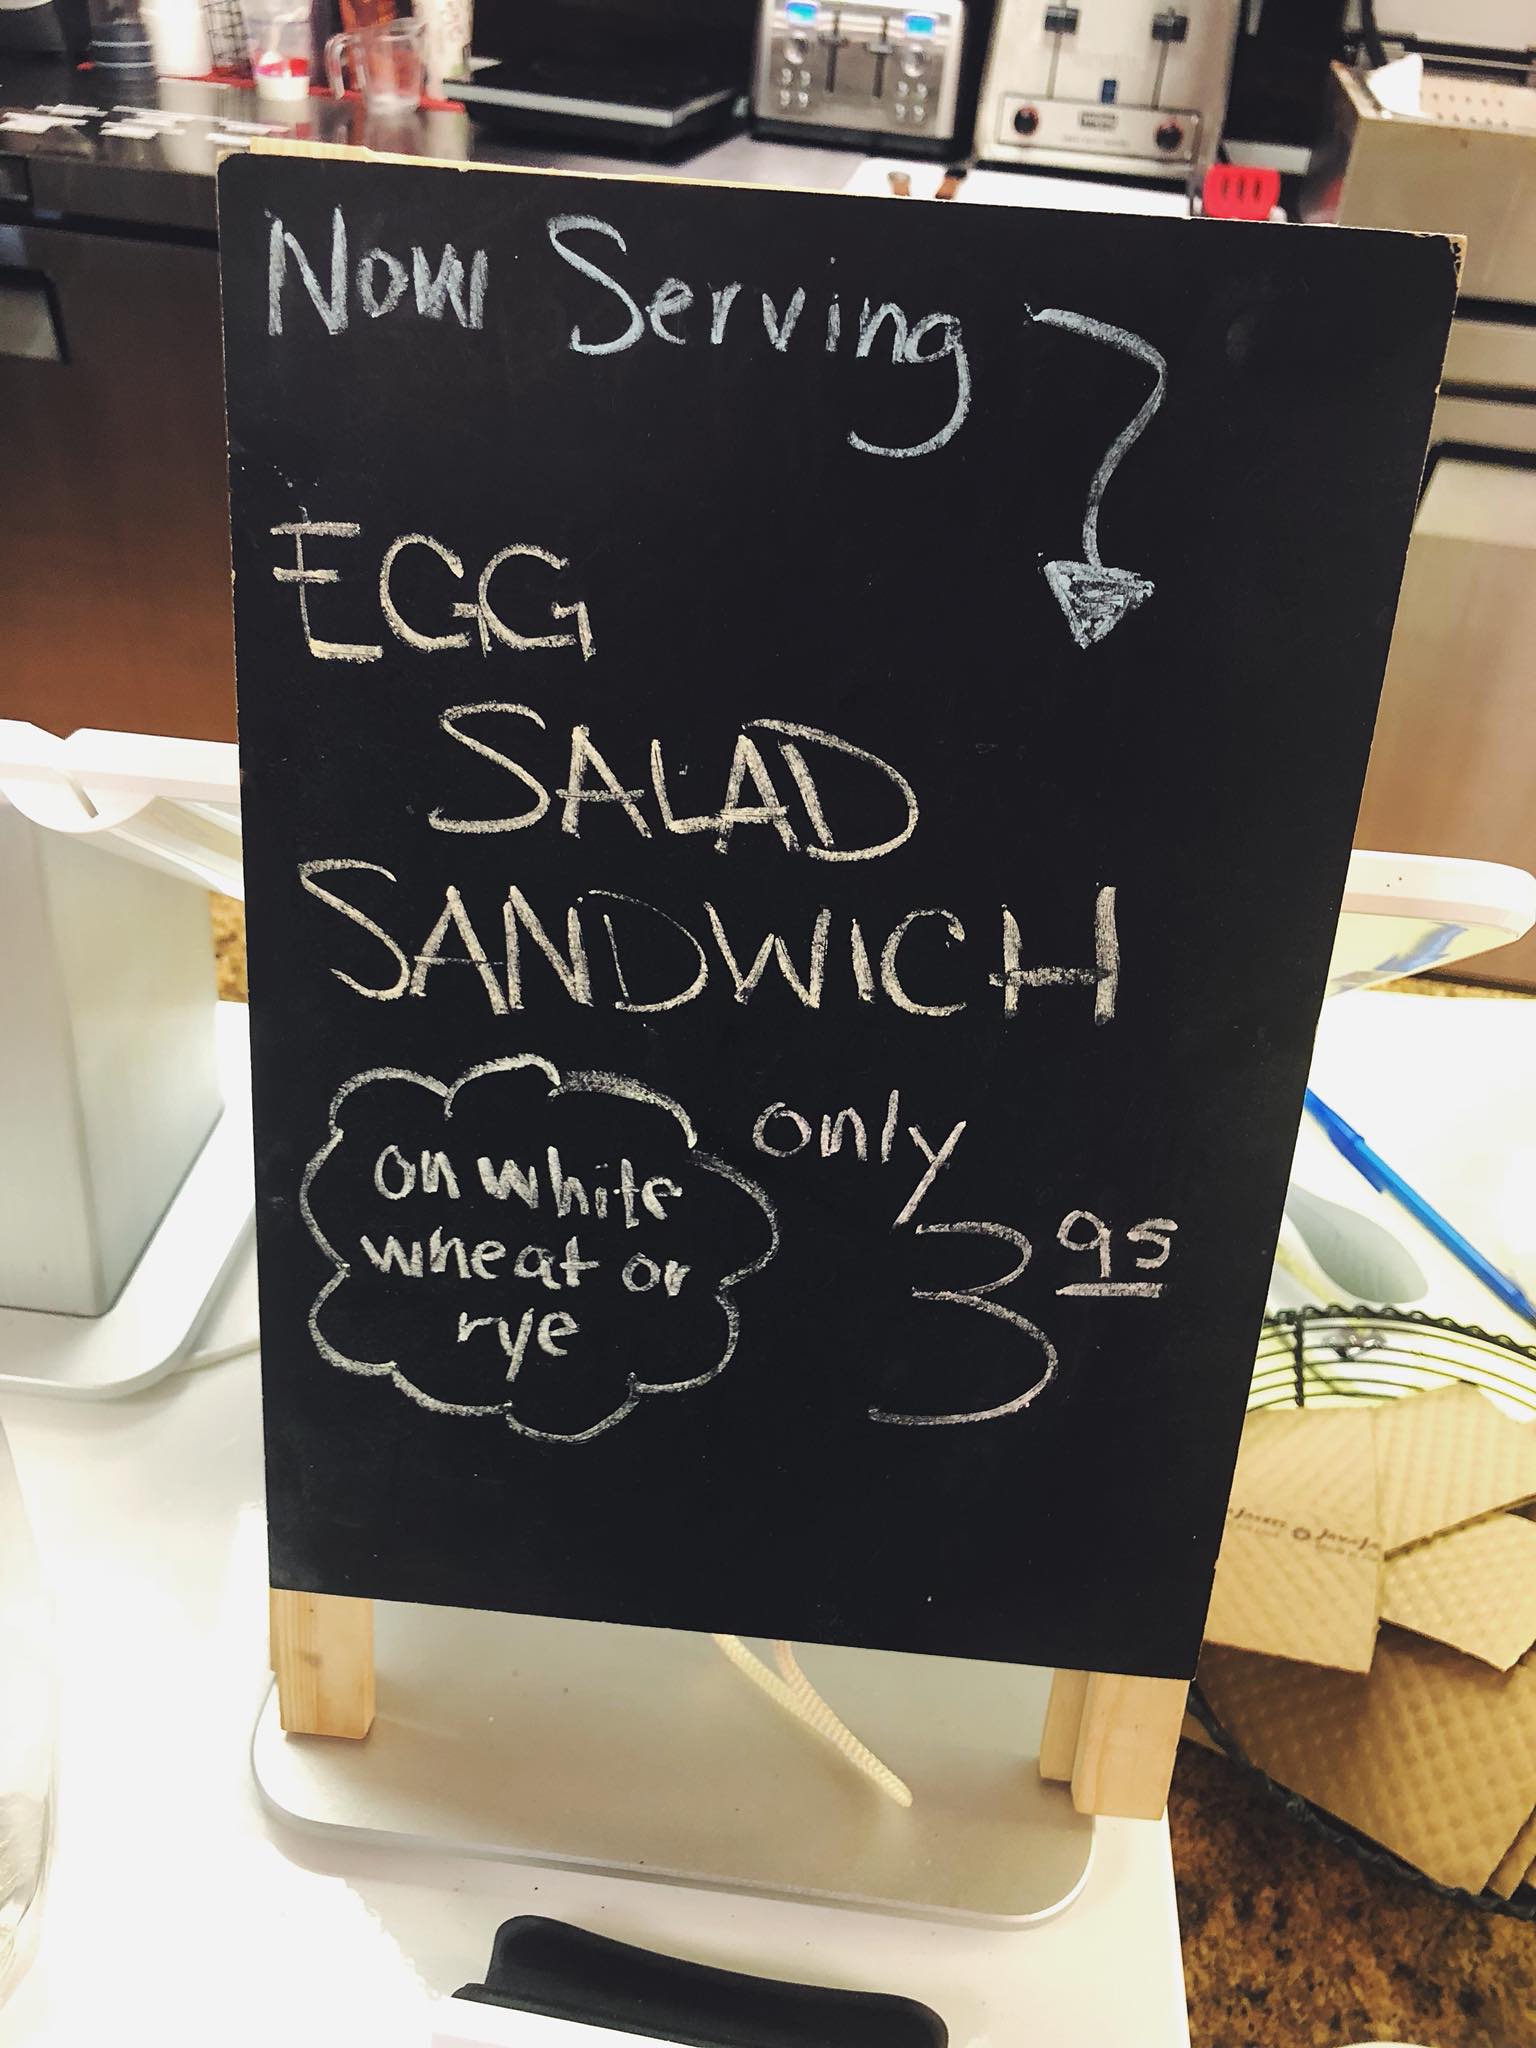 Now Serving
EGG
SALAD
SANDWICH
on white
wheat or
rye
only
3 95